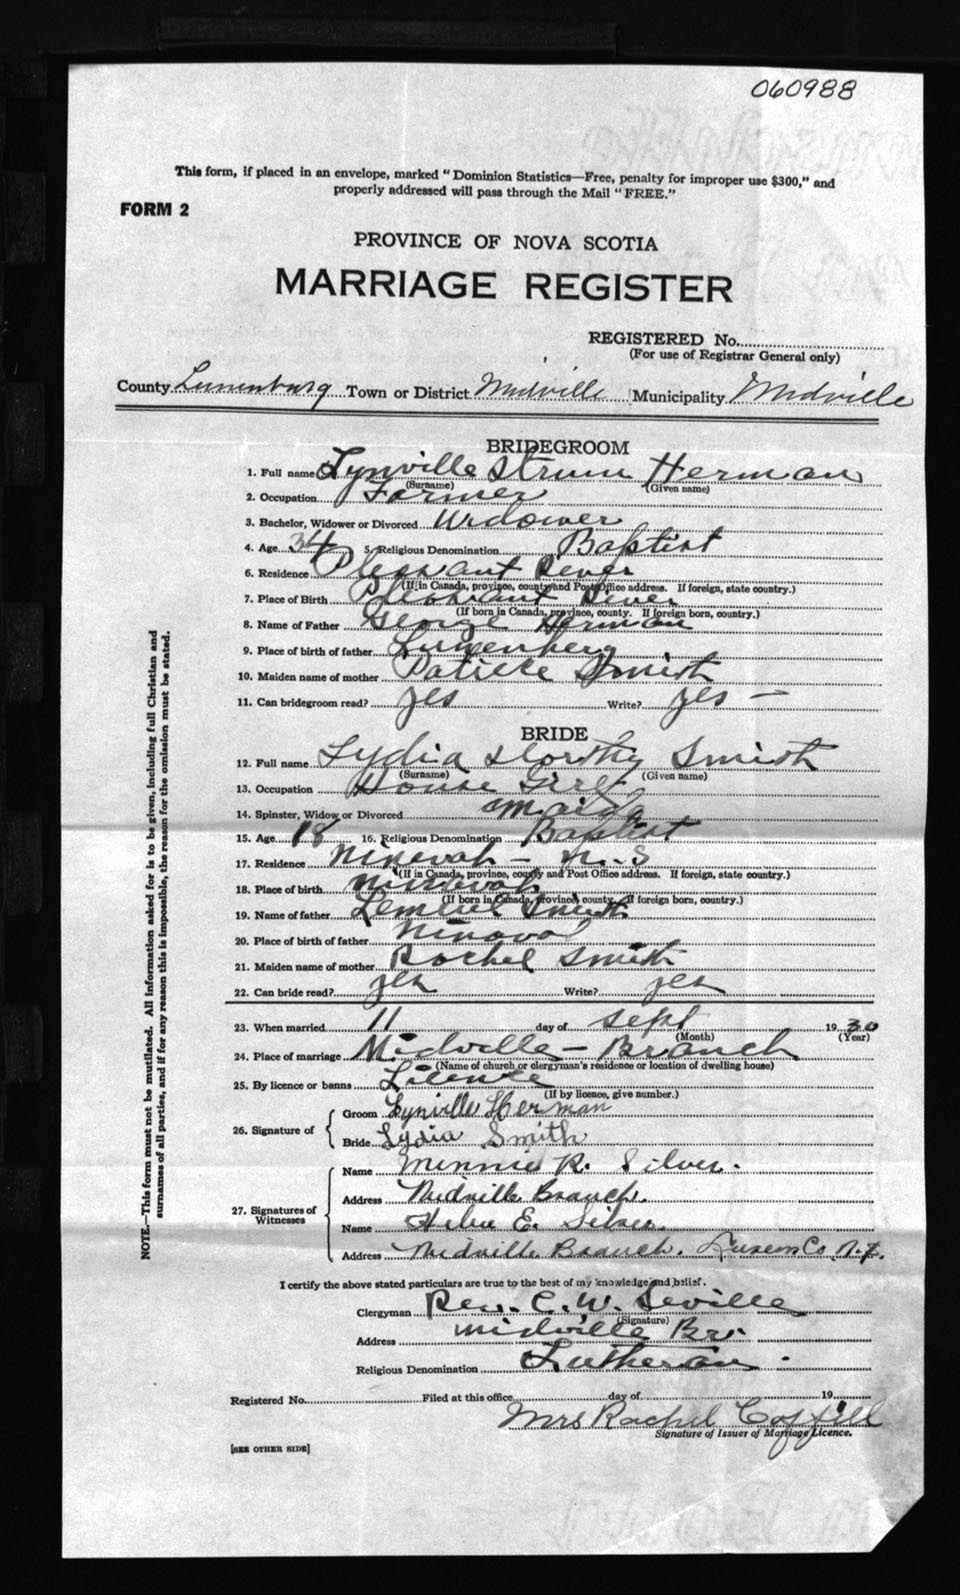 060988
This form, if placed in an envelope, marked "Dominion Statistics—Free, penalty for improper use $300," and
properly addressed will pass through the Mail "FREE."
FORM 2
PROVINCE OF NOVA SCOTIA
MARRIAGE REGISTER
REGISTERED No.
(For use of Registrar General only)
County Lunenburg Town or District Midville Municipality Midville
BRIDEGROOM
1. Full name Lynville Strum Herman
(Surname) (Given name)
2. Occupation Farmer
3. Bachelor, Widower or Divorced Widower
4. Age 34 5. Religious Denomination Baptist
6. Residence Pleasant River
(If in Canada, province, county and Post Office address. If foreign, state country.)
7. Place of Birth Pleasant River
(If born in Canada, province, county. If foreign born, country.)
8. Name of Father George Herman
9. Place of birth of father Lunenberg
10. Maiden name of mother Smith
11. Can bridegroom read? yes Write? yes —
BRIDE
12. Full name Lydia Dorthy Smith
(Surname) (Given name)
13. Occupation House Girl
14. Spinster, Widow or Divorced maid
15. Age 18 16. Religious Denomination Baptist
17. Residence Ninevah - N.S
(If in Canada, province, county and Post Office address. If foreign, state country.)
18. Place of birth Ninevah
(If born in Canada, province, county. If foreign born, country.)
19. Name of father Lemuel Smith
20. Place of birth of father
21. Maiden name of mother Rachel Smith
22. Can bride read? yes Write? yes
23. When married 11 day of Sept 1930
(Month) (Year)
24. Place of marriage Midville - Branch
(Name of church or clergyman's residence or location of dwelling house)
25. By licence or banns Licence
(If by licence, give number.)
26. Signature of
Groom Lynville Herman
Bride Lydia Smith
27. Signatures of Witnesses
Name Minnie R. Silver.
Address Midville Branch.
Name E. Silver.
Address Midville Branch. Lunen Co. N.S.
I certify the above stated particulars are true to the best of my knowledge and belief.
Clergyman Rev. C. W. Seville
(Signature)
Address Midville Br.
Religious Denomination Lutheran.
Registered No. Filed at this office day of 19
Mrs Rachel
Signature of Issuer of Marriage Licence.
[SEE OTHER SIDE]
NOTE.—This form must not be mutilated. All information asked for is to be given, including full Christian and
surnames of all parties, and if for any reason this is impossible, the reason for the omission must be stated.